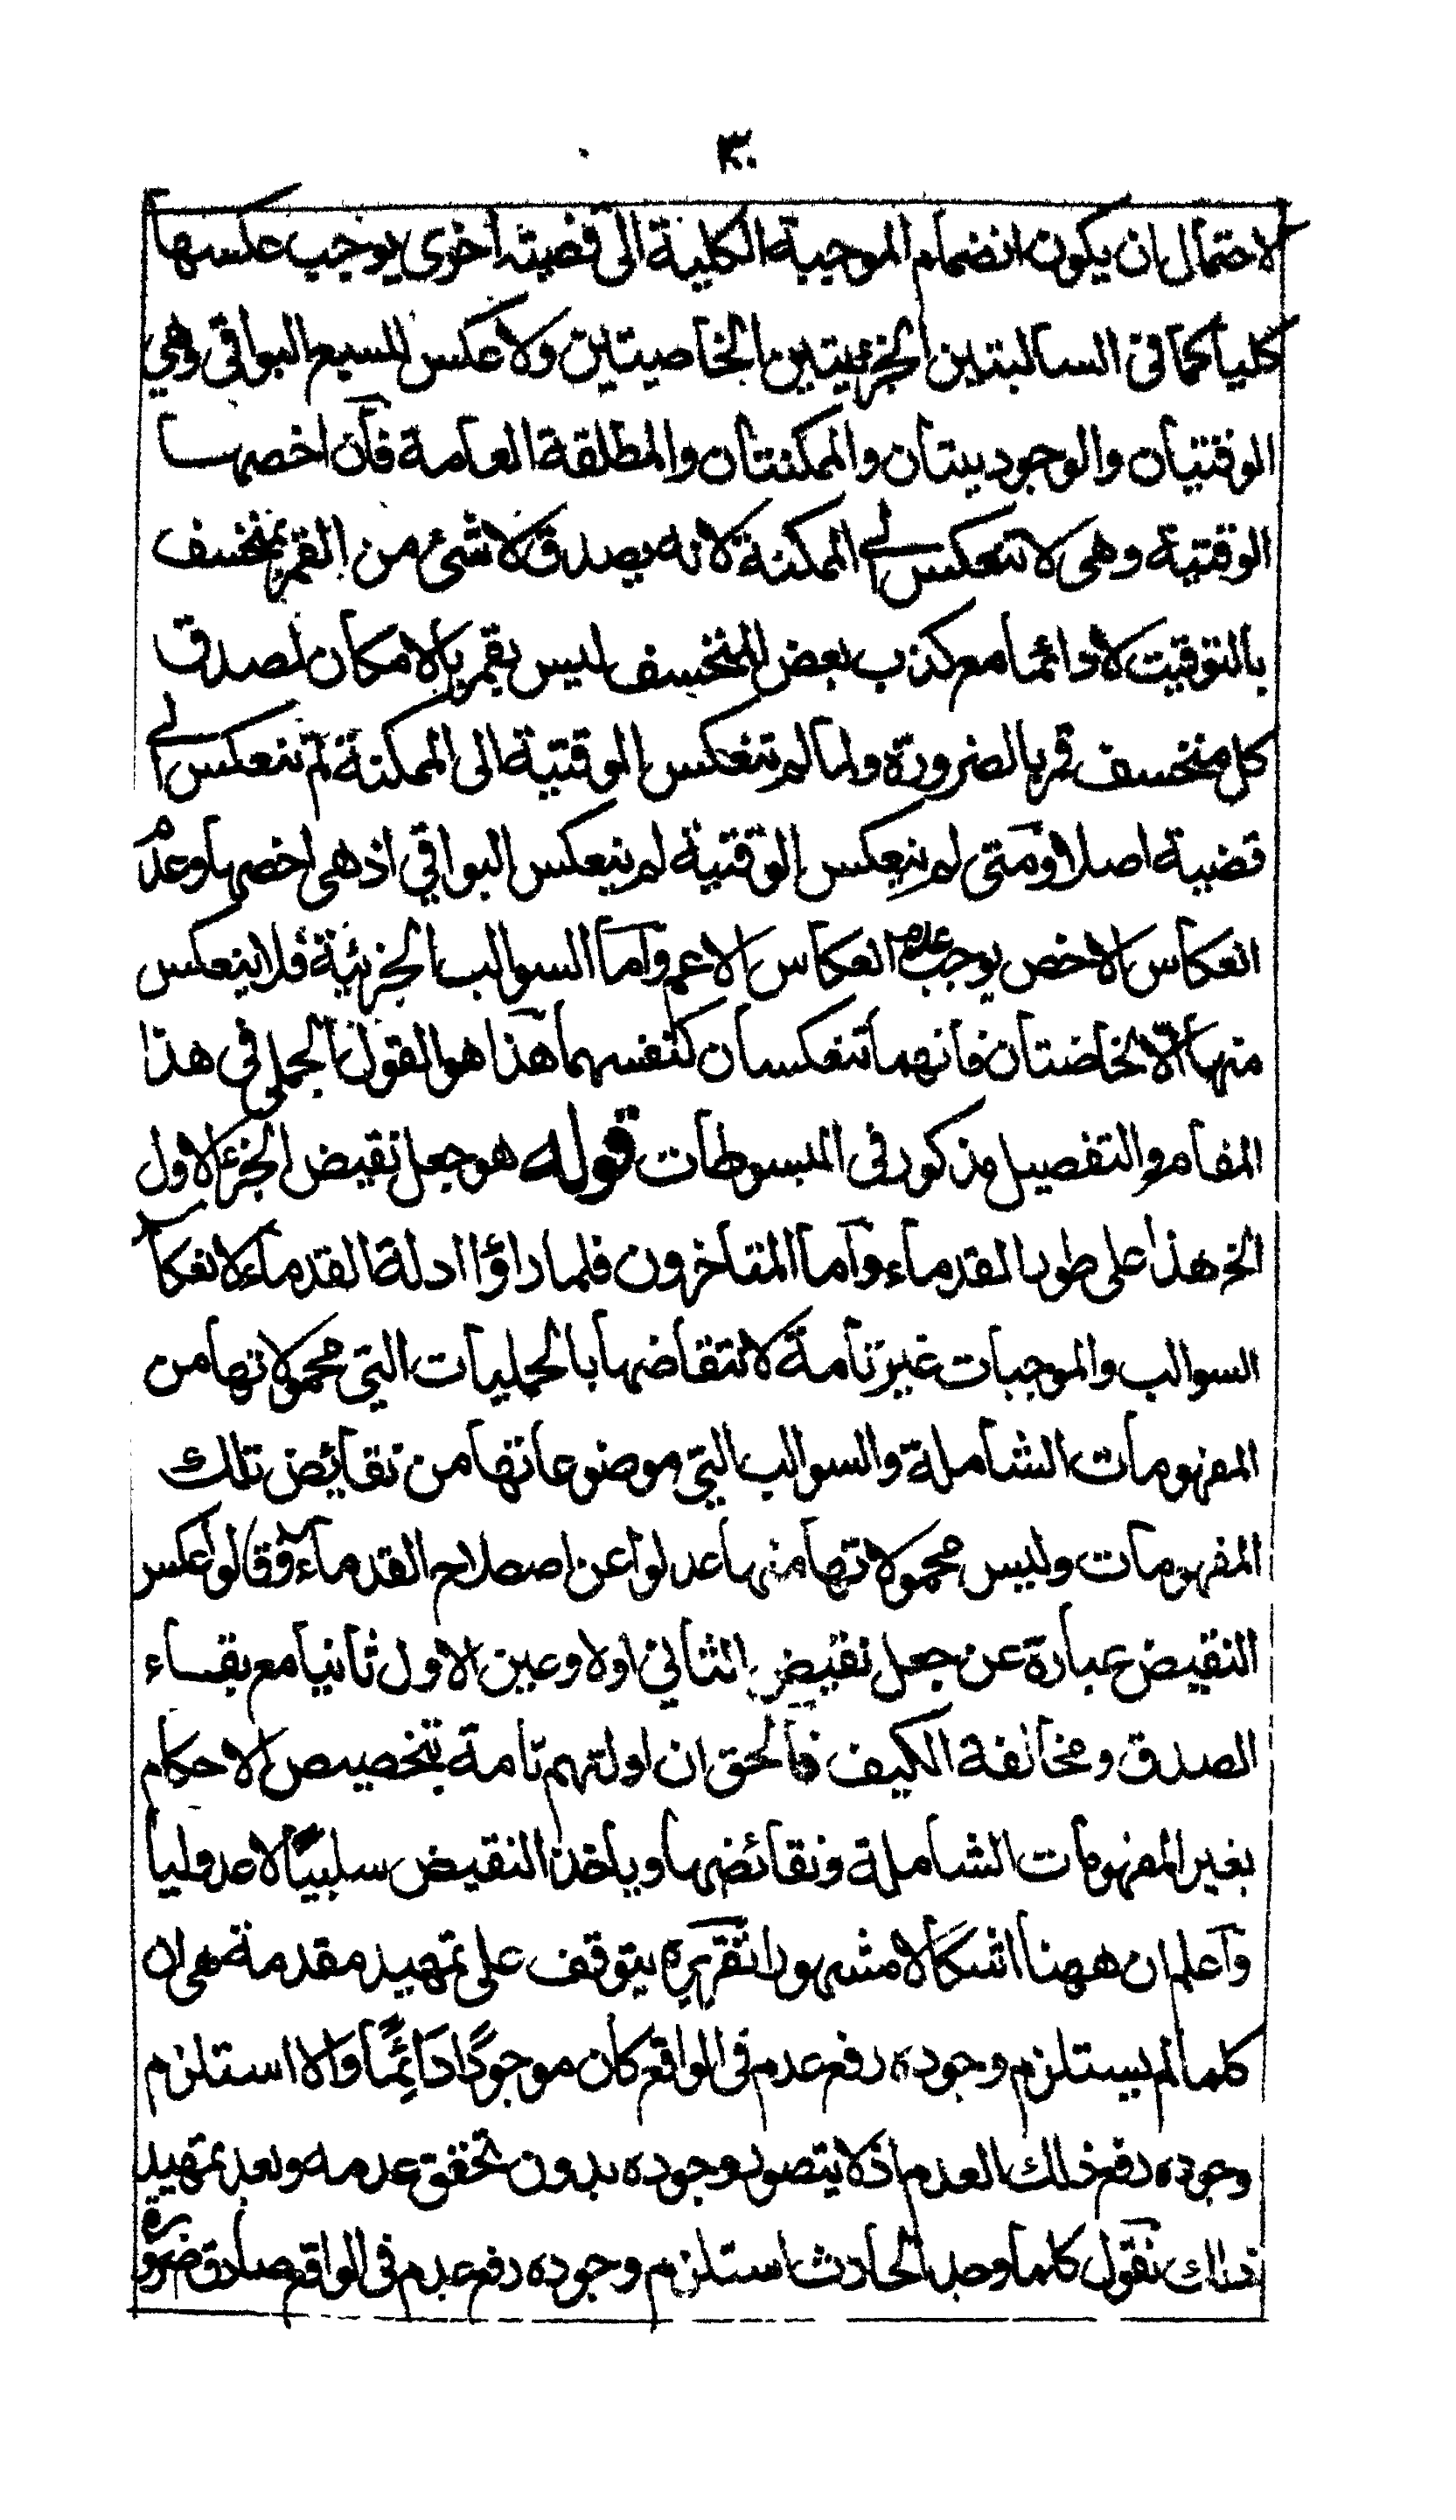 ٣٠
لاحتمال ان يكون انضمام الموجبة الكلية الى قضية اخرى يوجب عكسها
كليا كما فى السالبتين الجزئيتين الخاصيتين ولا عكس للسبع البواقى وهي
الوقتيان والوجوديتان والممكنتان والمطلقة العامة فان اخصها
الوقتية وهى لا تنعكس الى الممكنة لانه يصدق لا شئ من القمر بمنخسف
بالتوقيت لا دائما مع كذب بعض المنخسف ليس بقمر بالامكان لصدق
كل منخسف قمر بالضرورة ولما لم تنعكس الوقتية الى الممكنة لم تنعكس الى
قضية اصلا ومتى لم ينعكس الوقتية لم ينعكس البواقي اذ هى اخصها وعدم
انعكاس الاخص يوجب عدم انعكاس الاعم واما السوالب الجزئية فلا ينعكس
منها الا الخاضتان فانهما تنعكسان كنفسهما هذا هو القول الجملى فى هذا
المقام والتفصيل مذكور فى المبسوطات قوله هو جعل نقيض الجزء الاول
الخ هذا على طور القدماء واما المتاخرون فلما راؤا ادلة القدماء لانعكاس
السوالب والموجبات غير تامة لانتقاضها بالحمليات التى محمولاتها من
المفهومات الشاملة والسوالب التى موضوعاتها من نقائض تلك
المفهومات وليس محمولاتها منها عدلوا عن اصطلاح القدماء وقالوا عكس
النقيض عبارة عن جعل نقيض الثاني اولا وعين الاول ثانيا مع بقاء
الصدق ومخالفة الكيف فالحق ان اولتهم تامة بتخصيص الاحكام
بغير المفهومات الشاملة ونقائضها وياخذ النقيض سلبيًا لا عدوليا
واعلم ان ههنا اشكالا مشهورا تقريره يتوقف على تمهيد مقدمة هى ان
كلما لم يستلزم وجوده رفع عدم فى الواقع كان موجودًا دائمًا والا استلزم
وجوده رفع ذلك العدم اذ لا يتصور وجوده بدون تحقق عدمه وبعد تمهيد
ذلك نقول كلما وجد الحادث استلزم وجوده رفع عدم فى الواقع صادق ضرورة